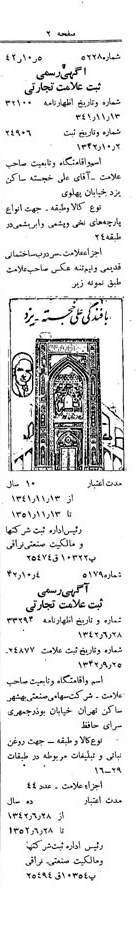 صفحه ۲
شماره ۵۲۲۸ ۵ر۱۰ر۴۲
آگهی رسمی
ثبت علامت تجارتی
شماره و تاریخ اظهارنامه ۳۲۱۰۰
۱۳ر۱۱ر۳۴۱
شماره وتاریخ ثبت ۲۴۹۰۶
۲ر۱۰ر۱۳۴۲
اسم واقامتگاه وتابعیت صاحب
علامت ـ آقای علی خجسته ساکن
یزد خیابان پهلوی
نوع کالا وطبقه ـ جهت انواع
پارچه‌های نخی وپشمی وابریشمی در
طبقه ۲۴
اجزاء علامت ـ سردرب ساختمانی
قدیمی ونیم‌تنه عکس صاحب علامت
طبق نمونه زیر
بافندگی علی خجسته ـ یزد
مدت اعتبار ۱۰ سال
از ۱۳ر۱۱ر۱۳۴۱
تا ۱۳ر۱۱ر۱۳۵۱
رئیس اداره ثبت شرکتها
و مالکیت صنعتی نراقی
پ۱۰۳۲۲ ق ۲۵۴۷۴
شماره ۵۱۷۹ ۴ر۱۰ر۴۲
آگهی رسمی
ثبت علامت تجارتی
شماره و تاریخ اظهارنامه ۳۳۲۹۴
۲۸ر۶ر۱۳۴۲
شماره وتاریخ ثبت علامت ۲۴۸۷۷ـ
۲۵ر۹ر۱۳۴۲
اسم واقامتگاه وتابعیت صاحب
علامت ـ شرکت سهامی صنعتی بهشهر
ساکن تهران خیابان بوذرجمهری
سرای حافظ
نوع کالا و طبقه ـ جهت روغن
نباتی و تبلیغات مربوطه در طبقات
۲۹ـ۱۶
اجزاء علامت ـ عدد ۴۴
مدت اعتبار ده سال
از ۲۸ر۶ر۱۳۴۲
تا ۲۸ر۶ر۱۳۵۲
رئیس اداره ثبت شرکتها
ومالکیت صنعتی ـ نراقی
پ۱۰۳۵۴ ق ۲۵۴۹۴